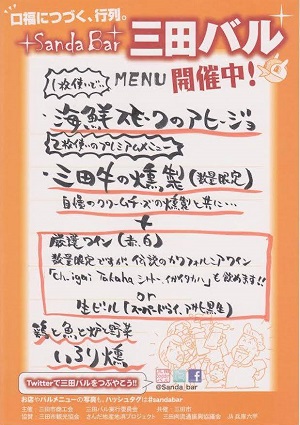 口福につづく、行列。
Sanda Bar 三田バル
1枚使いで… MENU 開催中!
・海鮮スモークのアヒージョ
2枚使いのプレミアムメニュー
・三田牛の燻製(数量限定)
自慢のクリームチーズの燻製と共に…
+
厳選ワイン(赤、白)
数量限定ですが、伝説のカリフォルニアワイン
「Ch.igai Takaha シャトー、イガイタカハ」も飲めます!!
or
生ビール(スーパードライ、アサヒ黒生)
鶏と魚と炉野菜
いろり燻
@Sanda_bar
Twitterで三田バルをつぶやこう!!
お店やバルメニューの写真も、ハッシュタグは#sandabar
主催:三田市商工会 三田バル実行委員会 共催:三田市
協賛:三田市観光協会 さんだ地産地消プロジェクト 三田肉流通振興協議会 JA兵庫六甲